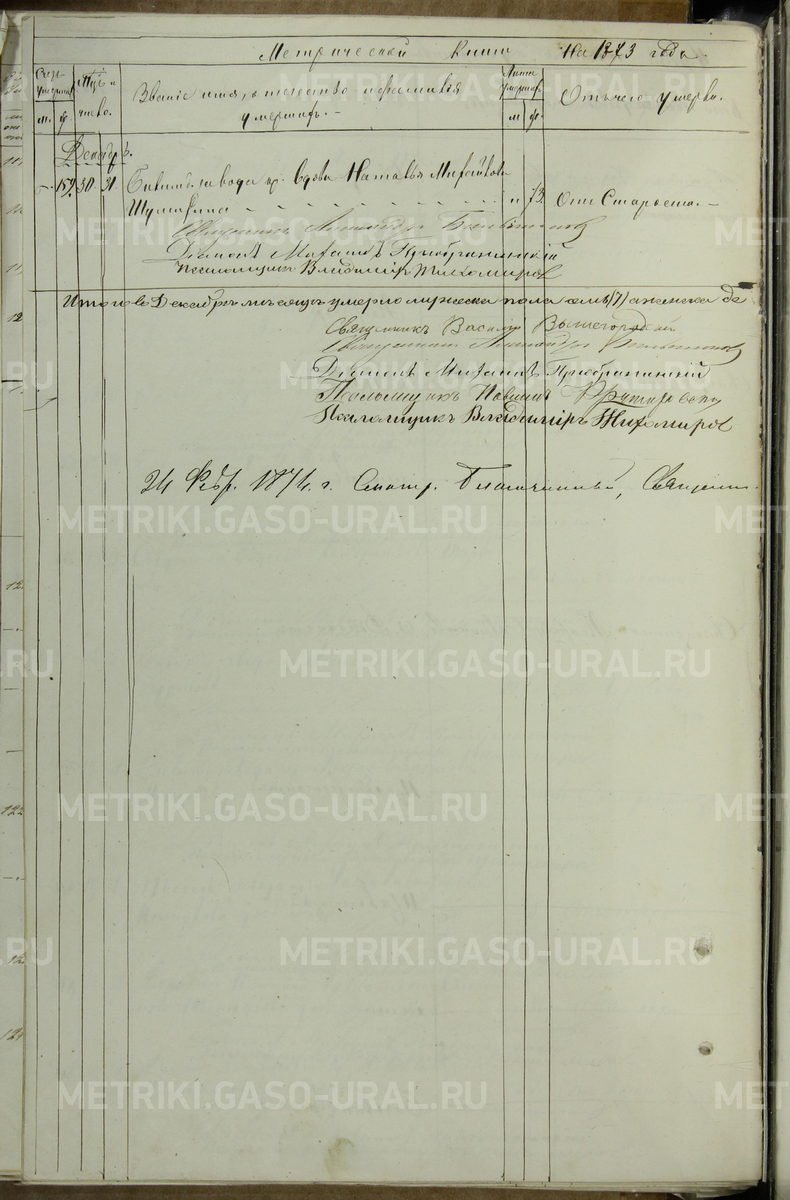 Метрической книги на 1873 годъ.
Счетъ умершихъ
Мѣс. и число.
Званіе имя, отчество и фамилія умершихъ.
Лѣта умершихъ.
Отъ чего умерли.
м. ж.
м ж.
Декабрь.
157. 30 31 завода вдова Наталья Михайлова
73. Отъ Старости.
Священникъ Александръ
Діаконъ Михаилъ Преображенскій
Псаломщикъ Владиміръ Тихомировъ
Итого въ Декабрѣ мѣсяцѣ умерло мужеска пола семь (7) а женска
Священникъ Василій Вышегородскій
Священникъ Александръ
Діаконъ Михаилъ Преображенскій
Псаломщикъ
Псаломщикъ Владиміръ Тихомировъ
24 Февр. 1874 г. Смотр. Благочинный, Священн.
METRIKI.GASO-URAL.RU